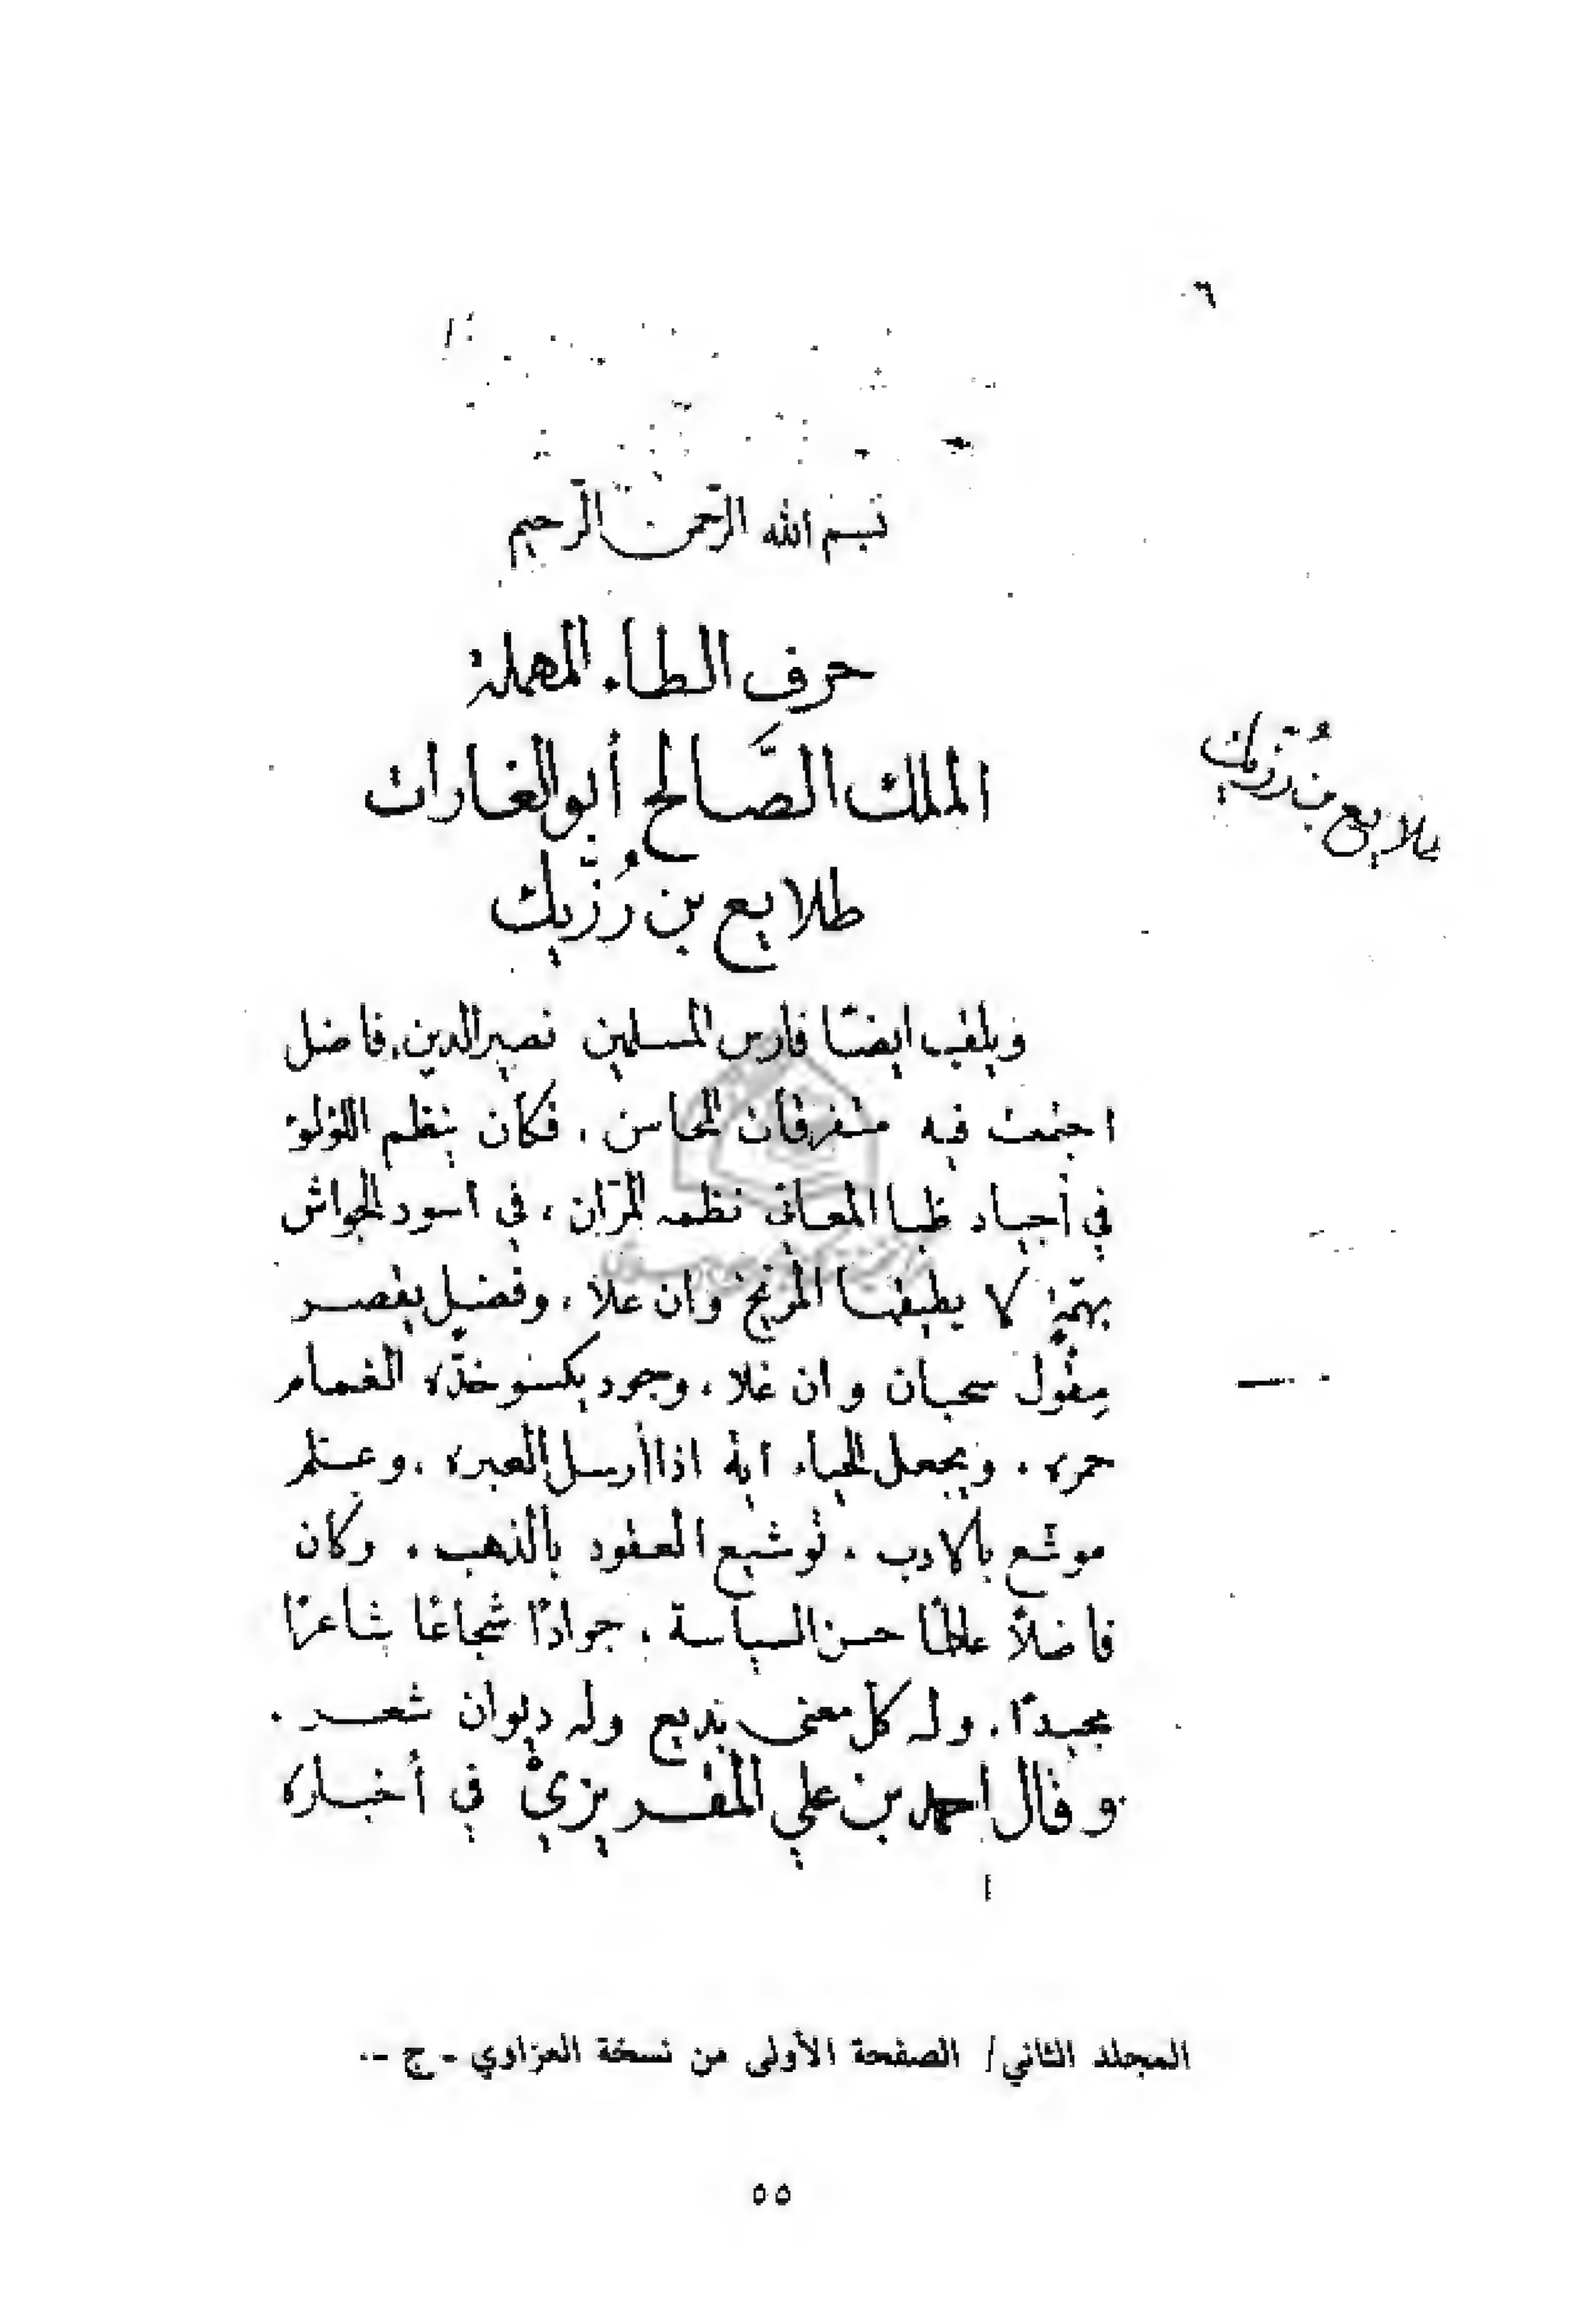 ٦
بسم الله الرّحمن الرّحيم
حرف الطاء المهملة
الملك الصَّالح أبو الغارات
طلايع بن رُزّيك
طلايع بن رُزّيك
ويلقب ايضًا فارس المسلمين نصير الدين، فاضل
اجتمعت فيه متفرقات المحاسن، فكان ينظم اللؤلؤ
في أجياد ظبا المعاني نظمه المرّان، في اسود الجواش
بهمّة لا يطيقها المرّيخ وان علا، وفضل يقصر
مِقْول سحبان وان غلا، وجود يكسو خدّه الغمام
حمره، ويجعل الحياء آية اذا أرسل العبره، وعلم
موشع بالادب، توشيع العقود بالذهب، وكان
فاضلاً عالمًا حسن السياسة، جوادًا شجاعًا شاعرًا
مجيدًا، وله كل معنى بديع وله ديوان شعر.
وقال احمد بن علي المقريزيْ في أخباره
المجلد الثاني/ الصفحة الأولى من نسخة العزاوي - ج -.
٥٥